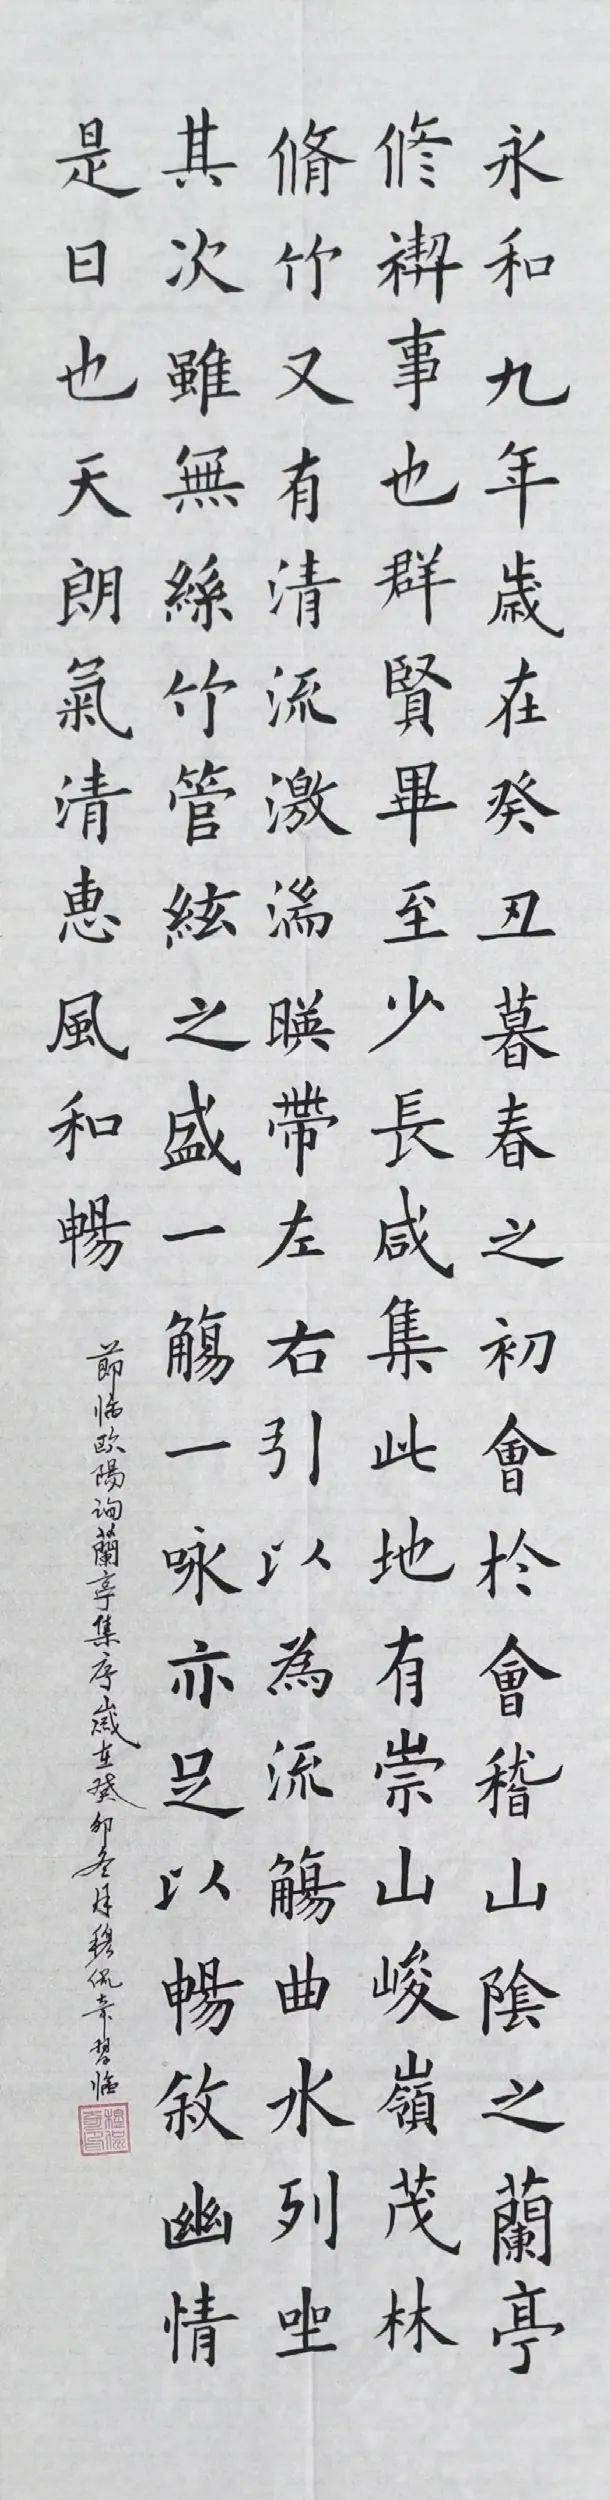 永和九年歲在癸丑暮春之初會於會稽山陰之蘭亭
修禊事也群賢畢至少長咸集此地有崇山峻嶺茂林
脩竹又有清流激湍暎帶左右引以為流觴曲水列坐
其次雖無絲竹管絃之盛一觴一咏亦足以暢敘幽情
是日也天朗氣清惠風和暢
節临歐陽询蘭亭集序歲在癸卯冬月穆侃章習临